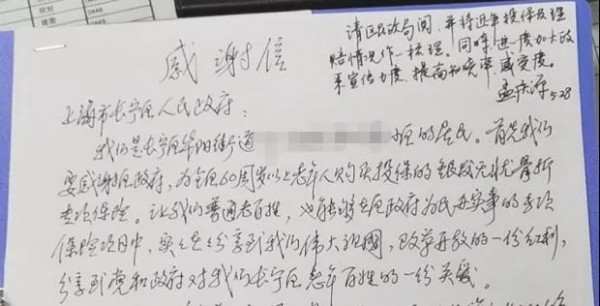 感谢信
请区民政局阅，并将近年投保及理
赔情况作一梳理，同时，进一步加大政
策宣传力度，提高知晓率、感受度。
孟庆源 5.28
上海市长宁区人民政府：
我们是长宁区华阳街道 小区的居民。首先我们
要感谢区政府，为全区60周岁以上老年人购买投保的银发无忧骨折
专项保险。让我们普通老百姓，能够在区政府为民办实事的专项
保险项目中，实实在在分享到我们伟大祖国，改革开放的一份红利，
分享到党和政府对我们长宁区老年百姓的一份关爱。